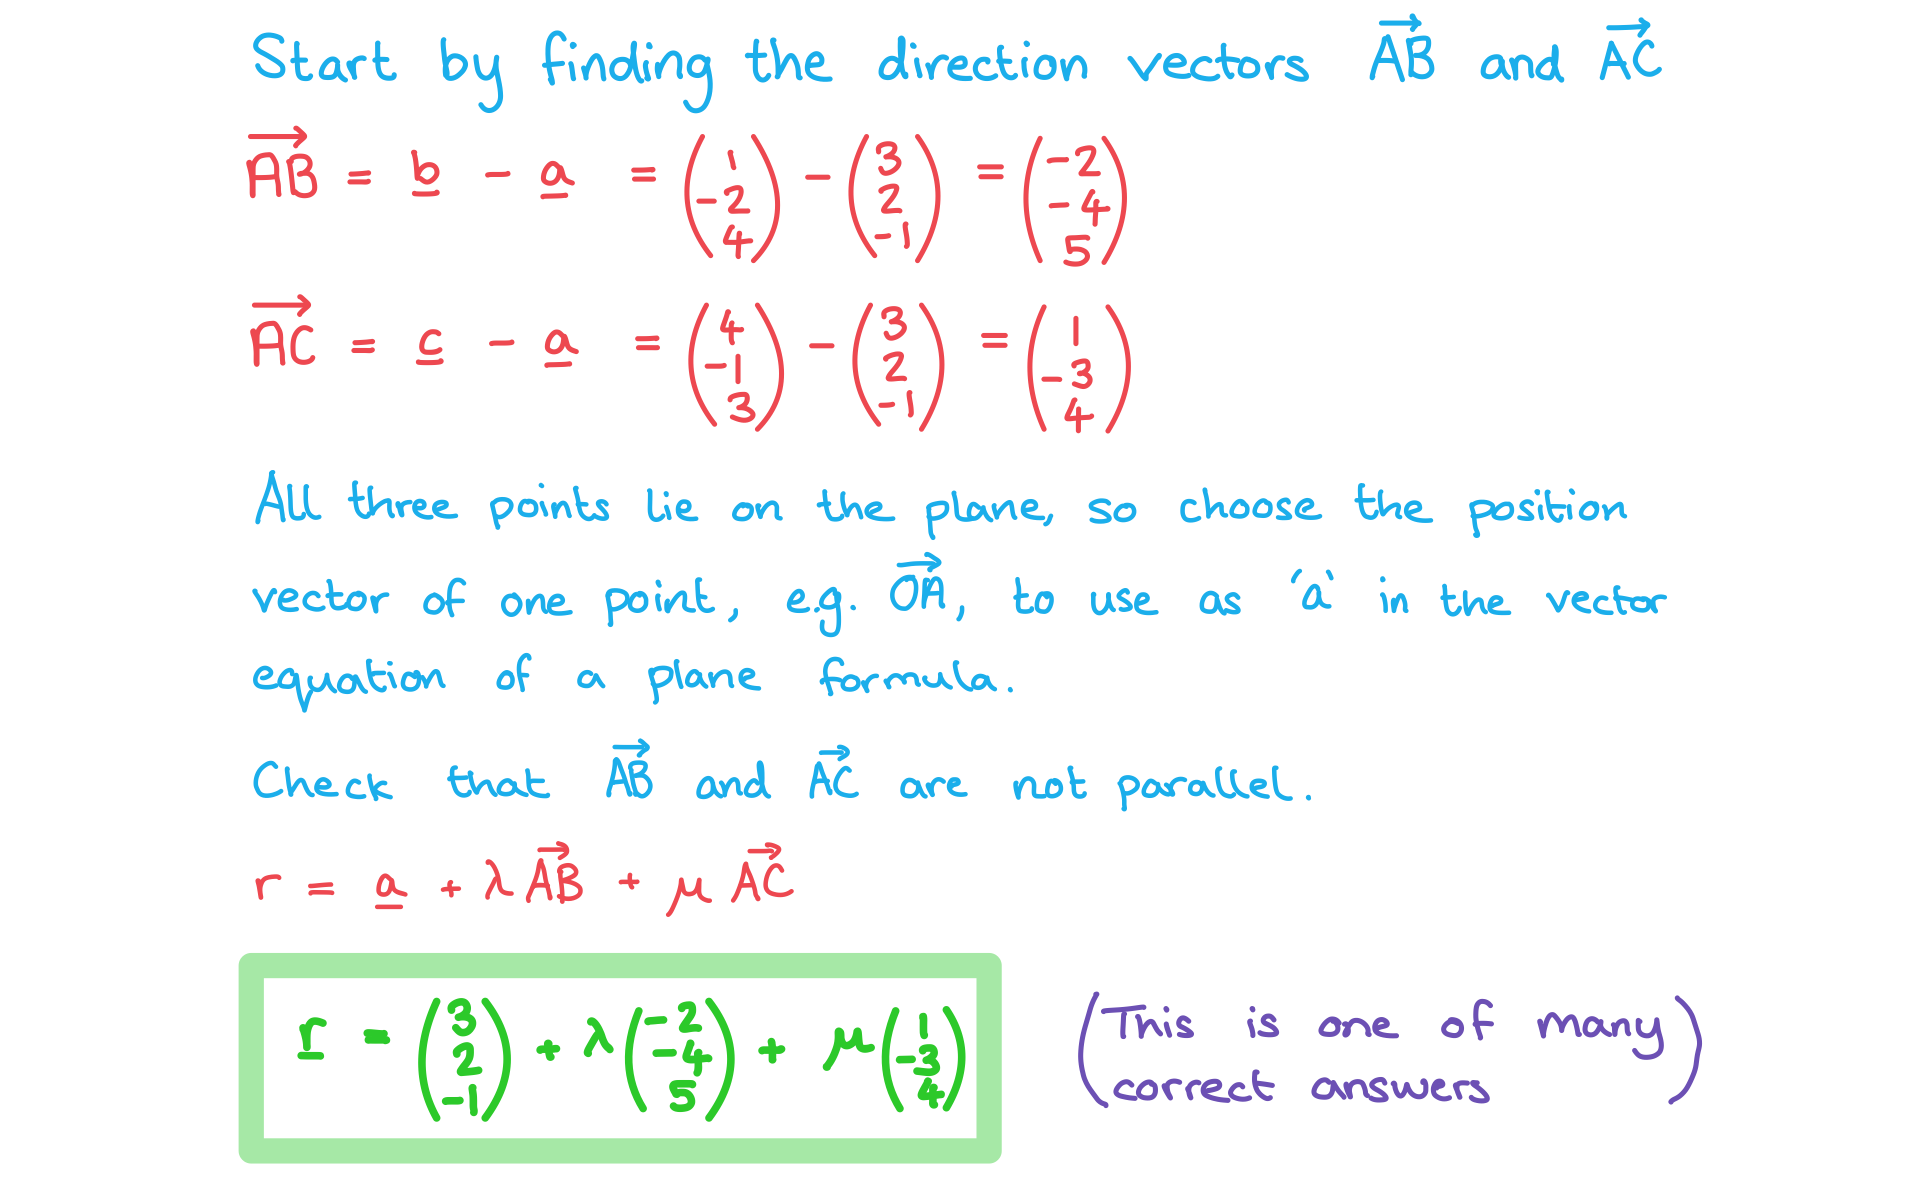 Start by finding the direction vectors $\overrightarrow{AB}$ and $\overrightarrow{AC}$
$\overrightarrow{AB} = \underline{b} - \underline{a} = \begin{pmatrix} 1 \\ -2 \\ 4 \end{pmatrix} - \begin{pmatrix} 3 \\ 2 \\ -1 \end{pmatrix} = \begin{pmatrix} -2 \\ -4 \\ 5 \end{pmatrix}$
$\overrightarrow{AC} = \underline{c} - \underline{a} = \begin{pmatrix} 4 \\ -1 \\ 3 \end{pmatrix} - \begin{pmatrix} 3 \\ 2 \\ -1 \end{pmatrix} = \begin{pmatrix} 1 \\ -3 \\ 4 \end{pmatrix}$
All three points lie on the plane, so choose the position
vector of one point, e.g. $\overrightarrow{OA}$, to use as 'a' in the vector
equation of a plane formula.
Check that $\overrightarrow{AB}$ and $\overrightarrow{AC}$ are not parallel.
$r = \underline{a} + \lambda \overrightarrow{AB} + \mu \overrightarrow{AC}$
$\underline{r} = \begin{pmatrix} 3 \\ 2 \\ -1 \end{pmatrix} + \lambda \begin{pmatrix} -2 \\ -4 \\ 5 \end{pmatrix} + \mu \begin{pmatrix} 1 \\ -3 \\ 4 \end{pmatrix}$
(This is one of many
correct answers)